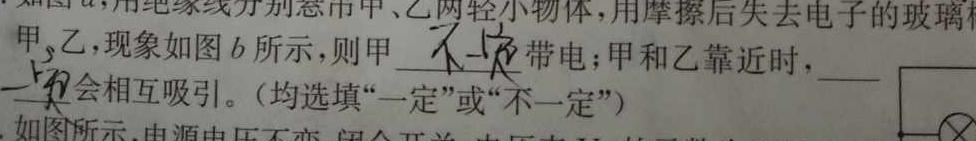 如图a,用绝缘线分别悬吊甲、乙两轻小物体,用摩擦后失去电子的玻璃
甲、乙,现象如图b所示,则甲 不一定 带电;甲和乙靠近时,
一定会相互吸引。(均选填“一定”或“不一定”)
.如图所示,电源电压不变,闭合开关